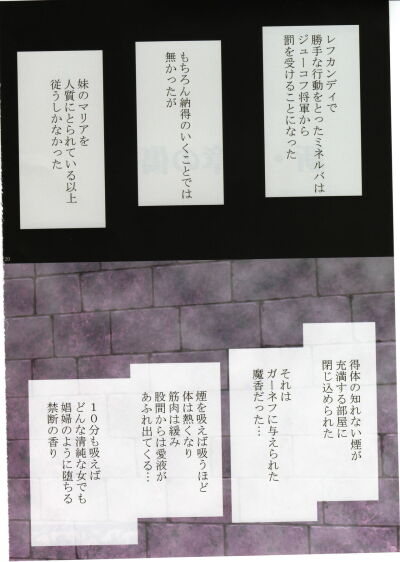 レフカンディで
勝手な行動をとったミネルバは
ジューコフ将軍から
罰を受けることになった
もちろん納得のいくことでは
無かったが
妹のマリアを
人質にとられている以上
従うしかなかった
得体の知れない煙が
充満する部屋に
閉じ込められた
それは
ガーネフに与えられた
魔香だった…
煙を吸えば吸うほど
体は熱くなり
筋肉は緩み
股間からは愛液が
あふれ出てくる…
10分も吸えば
どんな清純な女でも
娼婦のように堕ちる
禁断の香り
20